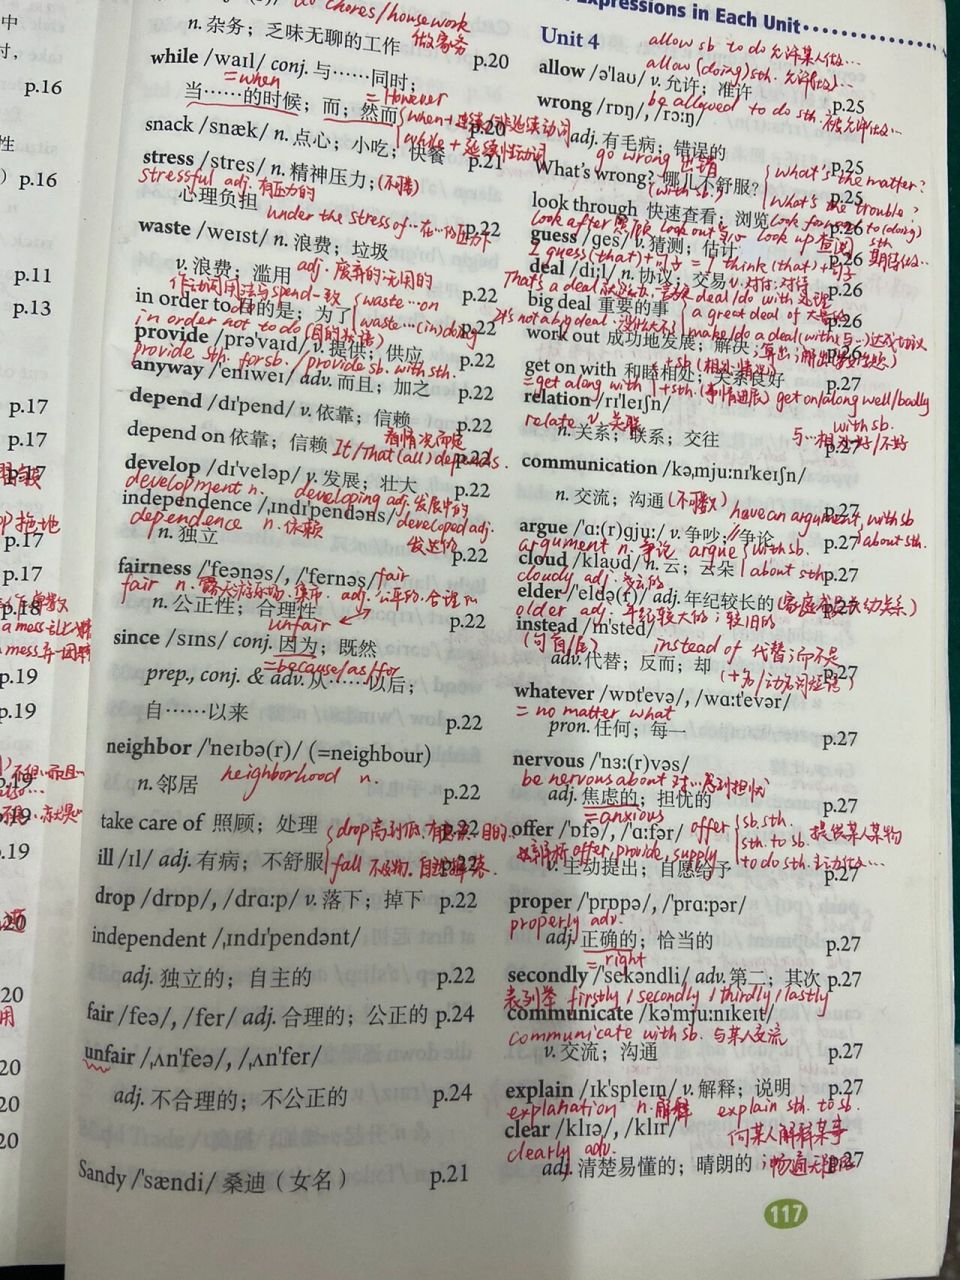 Expressions in Each Unit
do chores/housework
n. 杂务；乏味无聊的工作 做家务 p.20
while /waɪl/ conj. 与……同时；
=when
当……的时候；而；然而 p.20
=However
when+
while + 延续性动词
snack /snæk/ n. 点心；小吃；快餐 p.21
stress /stres/ n. 精神压力；(不可数)
stressful adj. 有压力的
心理负担 p.22
under the stress of…在…的压力下
waste /weɪst/ n. 浪费；垃圾
v. 浪费；滥用 p.22
adj. 废弃的；无用的
作动词用法与spend一致
waste…on
waste…(in)doing
in order to 目的是；为了 p.22
in order not to do
provide /prə'vaɪd/ v. 提供；供应 p.22
provide sth. for sb. / provide sb. with sth.
anyway /'eniweɪ/ adv. 而且；加之 p.22
depend /dɪ'pend/ v. 依靠；信赖 p.22
看情况而定
depend on 依靠；信赖 It/That (all) depends. p.22
develop /dɪ'veləp/ v. 发展；壮大 p.22
development n. developing adj. 发展中的
independence /ˌɪndɪ'pendəns/ developed adj.
dependence n. 依赖 发达的
n. 独立 p.22
fairness /'feənəs/, /'fernəs/ fair
fair n.
n. 公正性；合理性 p.22
unfair
since /sɪns/ conj. 因为；既然
=because/as/for
prep., conj. & adv. 从……以后；
自……以来 p.22
neighbor /'neɪbə(r)/ (=neighbour)
neighborhood n.
n. 邻居 p.22
take care of 照顾；处理 p.22
drop
ill /ɪl/ adj. 有病；不舒服 p.22
fall
drop /drɒp/, /drɑːp/ v. 落下；掉下 p.22
independent /ˌɪndɪ'pendənt/
adj. 独立的；自主的 p.22
fair /feə/, /fer/ adj. 合理的；公正的 p.24
unfair /ˌʌn'feə/, /ˌʌn'fer/
adj. 不合理的；不公正的 p.24
Sandy /'sændi/ 桑迪（女名） p.21
Unit 4
allow sb. to do 允许某人做…
allow (doing) sth. 允许做…
allow /ə'laʊ/ v. 允许；准许 p.25
be allowed to do sth. 被允许做…
wrong /rɒŋ/, /rɔːŋ/
adj. 有毛病；错误的 p.25
go wrong 出错
What's wrong? 哪儿不舒服？ p.25
(with sb.)
what's the matter?
what's the trouble?
look through 快速查看；浏览 p.26
look after 照顾 look out look up
guess /ges/ v. 猜测；估计 p.26
guess (that) + 句子 = I think (that) + 句子
deal /diːl/ n. 协议；交易 v. 对付；对待 p.26
That's a deal deal / do with 处理
big deal 重要的事 p.26
a great deal of 大量的
It's not a big deal. 没什么大不了
make/do a deal (with) 与…达成协议
work out 成功地发展；解决 p.26
get on with 和睦相处；关系良好 p.27
=get along with +sth. get on/along well/badly
with sb.
relation /rɪ'leɪʃn/
relate v. 关联
n. 关系；联系；交往 p.27
与…相处好/不好
communication /kəˌmjuːnɪ'keɪʃn/
n. 交流；沟通 (不可数) p.27
have an argument with sb
about sth.
argue /'ɑː(r)gjuː/ v. 争吵；争论 p.27
argument n. 争论 argue with sb.
about sth
cloud /klaʊd/ n. 云；云朵 p.27
cloudy adj. 多云的
elder /'eldə(r)/ adj. 年纪较长的 p.27
older adj. 年纪较大的；较旧的
instead /ɪn'sted/
(句首/尾) instead of 代替；而不是
adv. 代替；反而；却 p.27
whatever /wɒt'evə/, /wɑːt'evər/
= no matter what
pron. 任何；每一 p.27
nervous /'nɜː(r)vəs/
be nervous about 对…感到担忧
adj. 焦虑的；担忧的 p.27
=anxious
offer /'ɒfə/, /'ɑːfər/ offer
sb. sth.
sth. to sb. 提供某人某物
to do sth. 主动做…
offer, provide, supply
v. 主动提出；自愿给予 p.27
proper /'prɒpə/, /'prɑːpər/
properly adv.
adj. 正确的；恰当的 p.27
= right
secondly /'sekəndli/ adv. 第二；其次 p.27
表列举 firstly / secondly / thirdly / lastly
communicate /kə'mjuːnɪkeɪt/
communicate with sb. 与某人交流
v. 交流；沟通 p.27
explain /ɪk'spleɪn/ v. 解释；说明 p.27
explanation n. 解释 explain sth. to sb.
向某人解释某事
clear /klɪə/, /klɪr/
clearly adv.
adj. 清楚易懂的；晴朗的 p.27
117
p.16
p.16
p.11
p.13
p.17
p.17
p.17
p.17
p.17
p.18
p.19
p.19
p.19
p.19
p.19